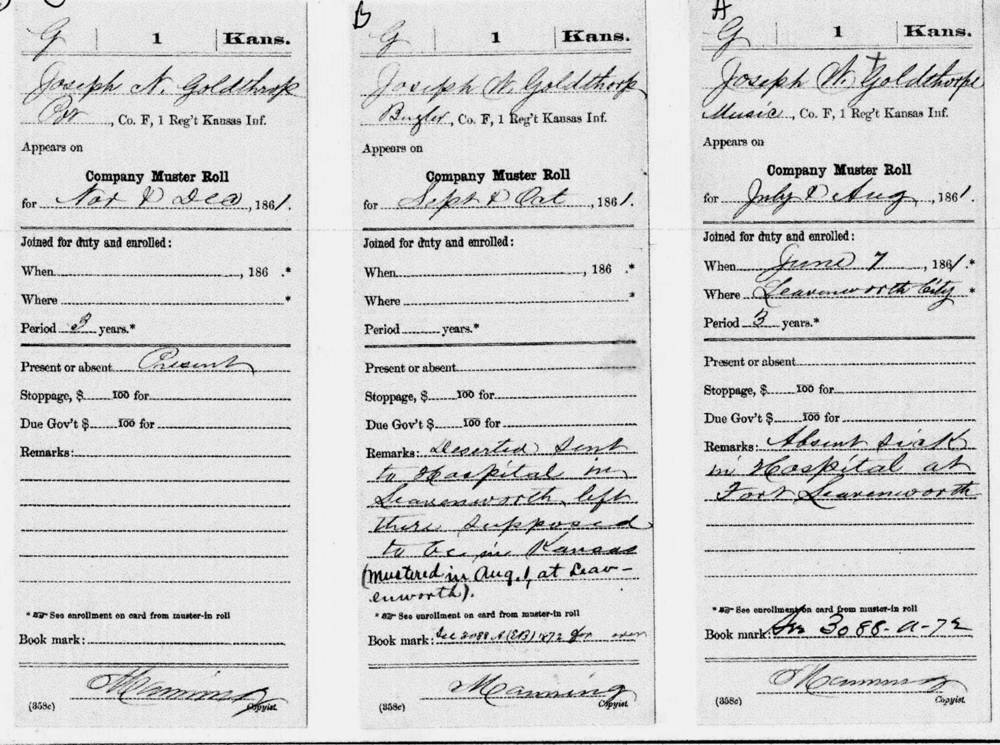 G | 1 | Kans.
Joseph N. Goldthrop
Pvt, Co. F, 1 Reg't Kansas Inf.
Appears on
Company Muster Roll
for Nov & Dec, 1861.
Joined for duty and enrolled:
When, 186 .*
Where *
Period 3 years.*
Present or absent Present
Stoppage, $ 100 for
Due Gov't $ 100 for
Remarks:
* See enrollment on card from muster-in roll
Book mark:
Manning
(358c) Copyist.
B
G | 1 | Kans.
Joseph W. Goldthorp
Bugler, Co. F, 1 Reg't Kansas Inf.
Appears on
Company Muster Roll
for Sept & Oct, 1861.
Joined for duty and enrolled:
When, 186 .*
Where *
Period years.*
Present or absent
Stoppage, $ 100 for
Due Gov't $ 100 for
Remarks: Deserted Sent
to Hospital in
Leavenworth left
there supposed
to be in Kansas
(mustered in Aug. 1, at Leav-
enworth).
* See enrollment on card from muster-in roll
Book mark: See 3088 A (EB) 1872 for over
Manning
(358c) Copyist.
A
G | 1 | Kans.
Joseph W. Goldthorpe
Music, Co. F, 1 Reg't Kansas Inf.
Appears on
Company Muster Roll
for July & Aug, 1861.
Joined for duty and enrolled:
When June 7, 1861.*
Where Leavenworth City *
Period 3 years.*
Present or absent
Stoppage, $ 100 for
Due Gov't $ 100 for
Remarks: Absent sick
in Hospital at
Fort Leavenworth
* See enrollment on card from muster-in roll
Book mark: See 3088-A-72
Manning
(358c) Copyist.